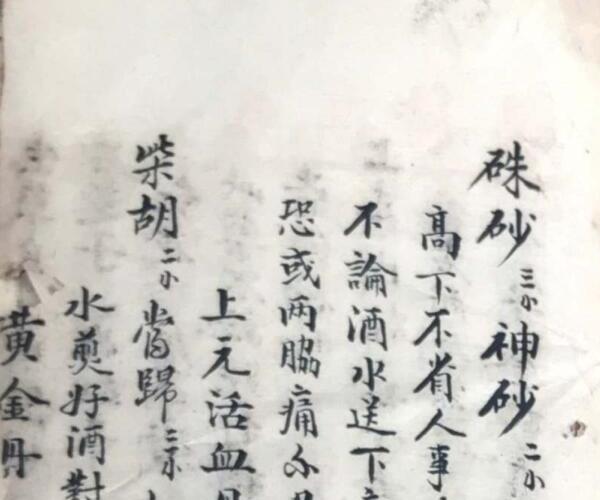 硃砂三小神砂二小
高下不省人事
不論酒水送下
恐或两脇痛
上元活血丹
柴胡二小當歸二小
水煎好酒對
黃金丹